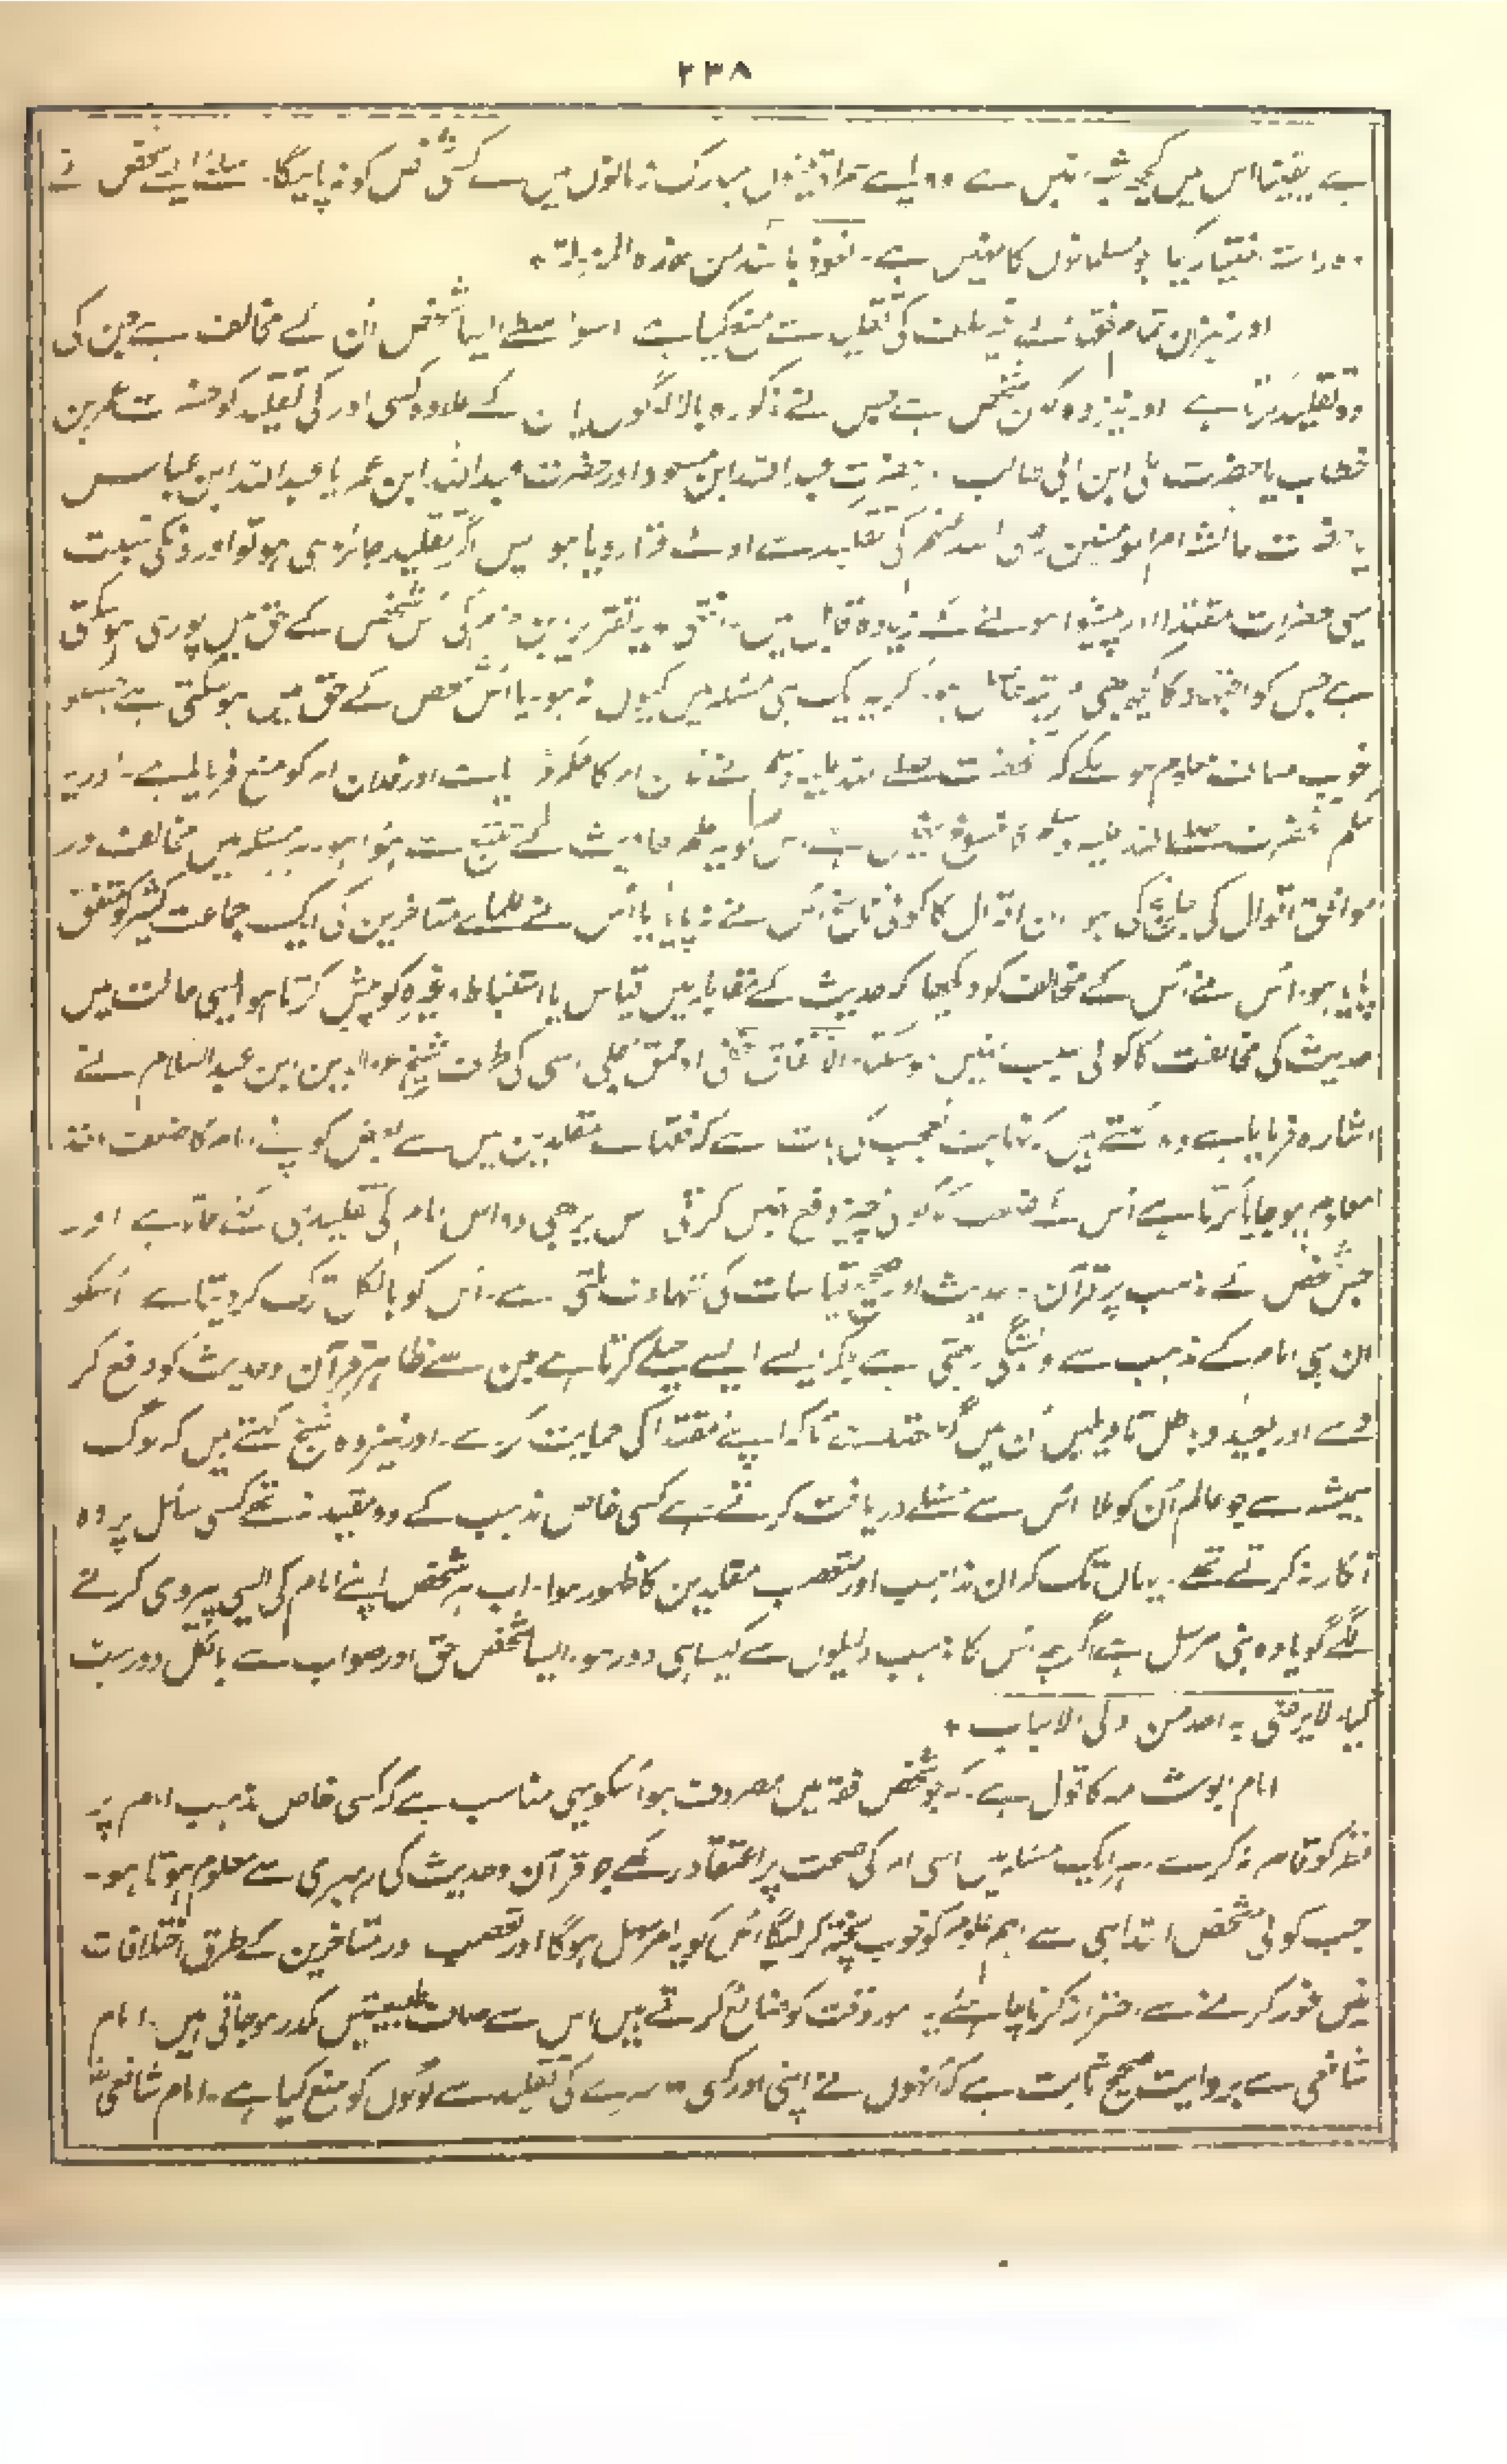 ۲۳۸
ہے یقیناً اس میں کچھ شبہ نہیں ہے وہ اپنے ہمراہ تینوں مبارک زمانوں میں سے کسی شخص کو نہ پائیگا۔ ایسے شخص نے
وہ راستہ اختیار کیا جو مسلمانوں کا نہیں ہے۔ نعوذ باللہ من ہذہ المنزلۃ ٭
اور نیز ان تمام نے غیر کی تقلید سے منع کیا ہے اسواسطے ایسا شخص اُن کے مخالف ہے جن کی
وہ تقلید کرتا ہے اور نیز وہ کون شخص ہے جس نے مذکورہ بالا لوگوں یا ان کے علاوہ کسی اور کی تقلید کو حضرت عمر بن
خطاب یا حضرت علی ابن ابی طالب حضرت عبداللہ ابن مسعود اور حضرت عبداللہ ابن عمر یا عبداللہ ابن عباس
یا حضرت عائشہ ام المومنین رضی اللہ عنہم کی تقلید سے قرار دیا ہو پس اگر تقلید جائز ہی ہو تو اورونکی نسبت
یہی حضرات مقتدا اور پیشوا ہونے کے زیادہ قابل ہیں۔ یہ تقریر ابن حزم کی اس شخص کے حق میں پوری ہو سکتی
ہے جس کو اجتہاد کا کچھ بھی مرتبہ حاصل ہو۔ گر یہ ایک ہی مسئلہ میں کیوں نہ ہو۔ یا اُس شخص کے حق میں ہو سکتی ہے
خوب صاف معلوم ہو سکے کہ آنحضرت صلے اللہ علیہ وسلم نے فلان امر کا حکم دیا ہے اور فلان امر کو منع فرمایا ہے۔ اور یہ
حکم آنحضرت صلے اللہ علیہ وسلم کا منسوخ نہیں ہے۔ اس کو یہ علم احادیث کے تتبع سے ہوا ہو۔ مسئلہ میں مخالف اور
موافق اقوال کی تلاش کی ہو ان اقوال کا کوئی ناسخ اُس نے نہ پایا یا اُس نے علماے متاخرین کی ایک جماعت کثیر کو متفق
پایا ہو۔ اُس نے اُس کے مخالف کو دیکھا کہ حدیث کے مقابلہ میں قیاس یا استنباط وغیرہ کو پیش کرتا ہو ایسی حالت میں
حدیث کی مخالفت کا کوئی سبب نہیں ہو سکتا۔ الا نفاق خفی او حمق جلی اسی کی طرف شیخ عزالدین ابن عبدالسلام نے
اشارہ فرمایا ہے وہ کہتے ہیں کہ نہایت تعجب کی بات ہے کہ فقہاے مقلدین میں سے بعض کو اپنے امام کا ضعف
معلوم ہو جایا کرتا ہے اُس کے ضعف کو کوئی چیز دفع نہیں کرتی اس پر بھی وہ اس امام کی تقلید ہی کئے جاتا ہے اور
جس شخص کے مذہب پر قرآن۔ حدیث اور صحیح قیاسات کی شہادت ملتی ہے۔ اُس کو بالکل ترک کر دیتا ہے اُسکو
ان ہی امام کے مذہب سے وابستگی رہتی ہے بلکہ ایسے ایسے حیلے کرتا ہے جن سے ظاہر قرآن و حدیث کو دفع کر
دے اور بعید و باطل تاویلیں اُن میں گھڑتا ہے تاکہ اپنے مقتدا کی حمایت کرے۔ اور نیز وہ شیخ کہتے ہیں کہ لوگ
ہمیشہ سے جو عالم اُن کو ملا اُس سے مسئلے دریافت کرتے رہے کسی خاص مذہب کے وہ مقید نہ تھے کسی سائل پر وہ
انکار نہ کرتے تھے۔ یہاں تک کہ ان مذاہب اور متعصب مقلدین کا ظہور ہوا۔ اب ہر شخص اپنے امام کی ایسی پیروی کرنے
لگے گویا وہ نبی مرسل ہے اگرچہ اس کا مذہب دلیلوں سے کیسا ہی دور ہو۔ ایسا شخص حق اور صواب سے بالکل دور ہٹ
گیا۔ لا یرضی بہ احد من اولی الالباب ٭
امام ابوشامہ کا قول ہے۔ کہ جو شخص فقہ میں مصروف ہو اُسکو یہی مناسب ہے کہ کسی خاص مذہب امام پر
نظر کو قائم نہ کرے۔ ہر ایک مسئلہ میں اسی امر کی صحت پر اعتقاد رکھے جو قرآن و حدیث کی رہبری سے معلوم ہوتا ہو۔
جب کوئی شخص ابتدا ہی سے اہم علوم کو خوب پختہ کر لیگا اُس کو یہ امر سہل ہوگا اور تعصب اور متاخرین کے طرق اختلافات
میں غور کرنے سے احتراز کرنا چاہئے۔ یہ امور وقت کو ضائع کرتے ہیں اس سے صاف طبیعتیں مکدر ہو جاتی ہیں۔ امام
شافعی سے بروایت صحیح ثابت ہے کہ اُنہوں نے اپنی اور کسی دوسرے کی تقلید سے لوگوں کو منع کیا ہے۔ امام شافعیؒ